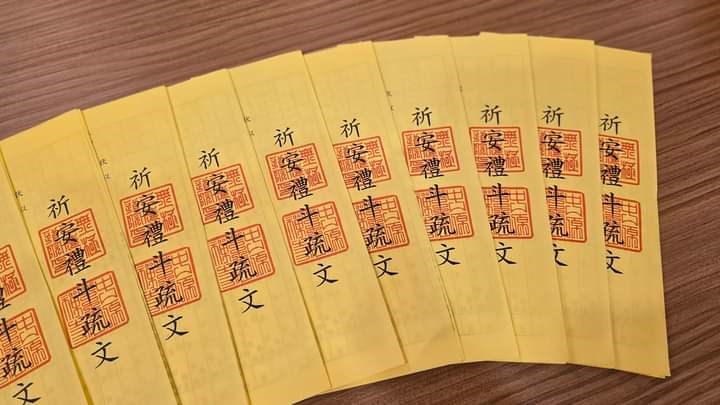 斗疏文
祈安禮斗疏文
祈安禮斗疏文
祈安禮斗疏文
祈安禮斗疏文
祈安禮斗疏文
祈安禮斗疏文
祈安禮斗疏文
祈安禮斗疏文
祈安禮斗疏文